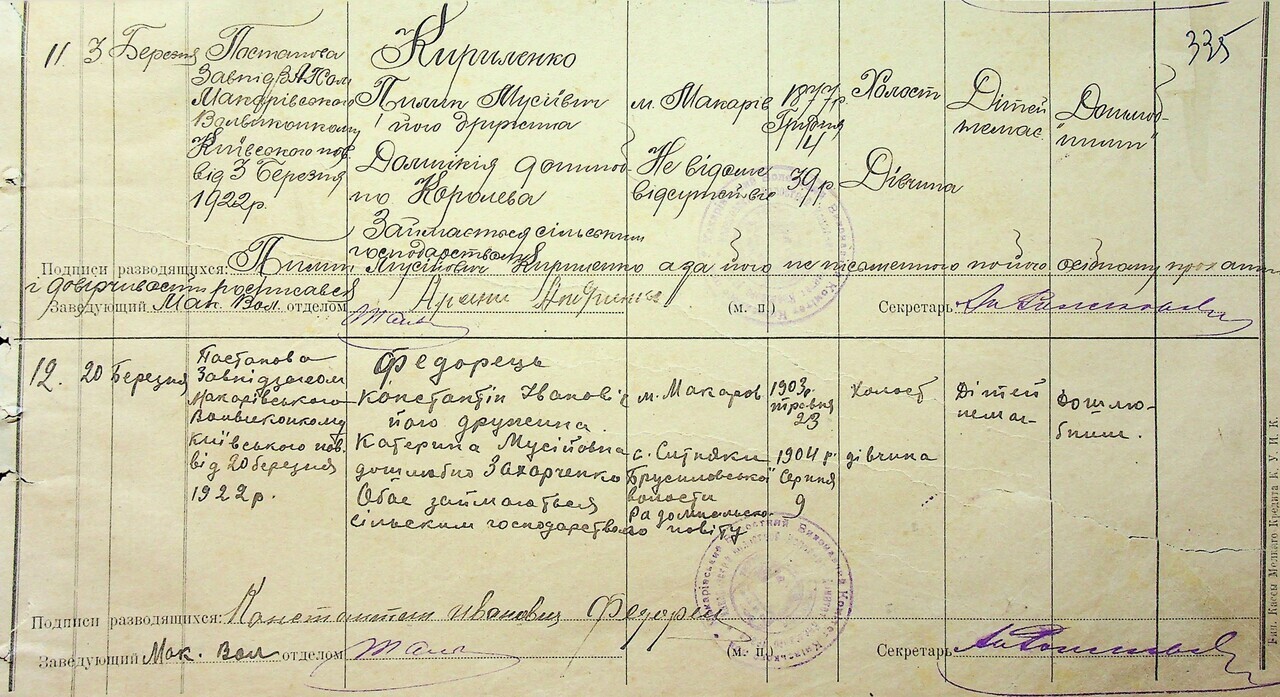 335
11 3 Березня
Постанова
Макарівського
Волвиконкому
Київського пов.
від 3 Березня
1922р.
Кириленко
Пилип Мусійвич
його дружина
Домнікія дошлюб
по Королева
Займається сільським
господарством
м. Макарів
Не відоме
відсутствіє
1877р.
Грудня
14
39р.
Холост
Дівчина
Дітей
немає
Подписи разводящихся: Пилип Мусійович Кириленко а за його не письменного по його
і довірчивости росписався
Заведующий Мак. Вол. отделом
(м. п.)
Секретарь
12. 20 Березня
Постанова
Завпідзагсом
Макарівського
Волвиконкому
Київського пов.
від 20 березня
1922р.
Федорець
Константін Іванович
його дружина.
Катерина Мусійовна
дошлюбно Захарченко
Обоє займаються
сільским господарством
м. Макаров
с. Ситняки
Брусиловської
волости
Радомисльсько
го повіту
1903р.
травня
23
1904 р.
Серпня
9
Холост
дівчина
Дітей
немає
дошлю-
бним.
Подписи разводящихся: Константин Иванович Федорец
Заведующий Мак. Вол отделом
(м. п.)
Секретарь
Кип. Кассы Мелкаго Кредита К. У. И. К.